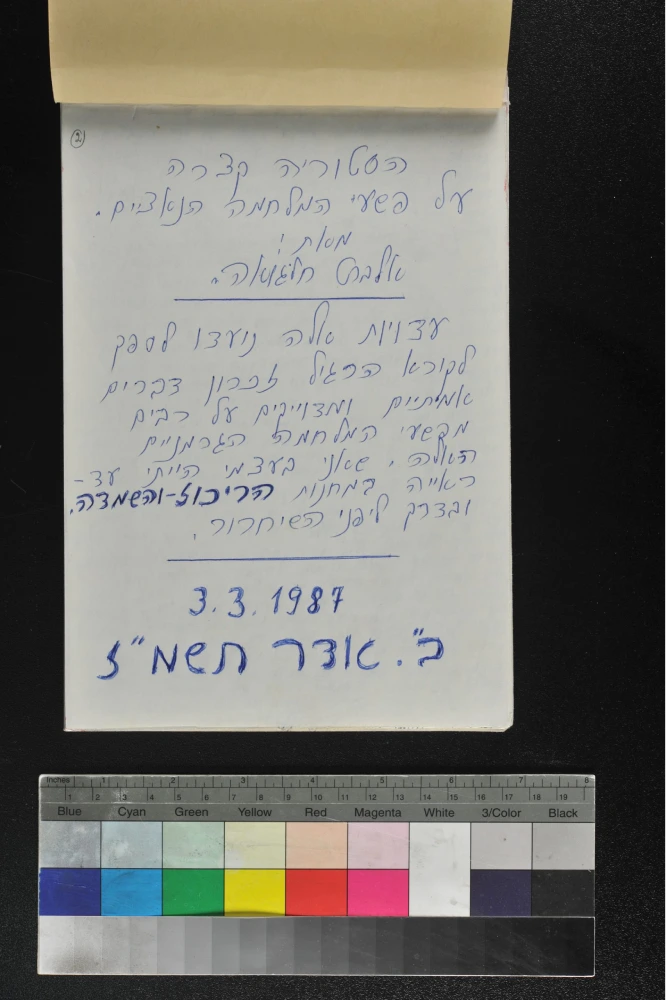 2
הסטוריה קצרה
על פשעי המלחמה הנאציים.
מאת:
אלברט
עדויות אלה נועדו לספק
לקורא הרגיל זכרון דברים
אמיתיים ומדוייקים על רבים
מפשעי המלחמה הגרמניים
האלה, שאני בעצמי הייתי עד-
ראייה במחנות הריכוז-והשמדה,
ובדרך ליפני השיחרור.
3.3.1987
ב". אדר תשמ"ז
Inches 1 2 3 4 5 6 7 8
1 2 3 4 5 6 7 8 9 10 11 12 13 14 15 16 17 18 19
Blue Cyan Green Yellow Red Magenta White 3/Color Black